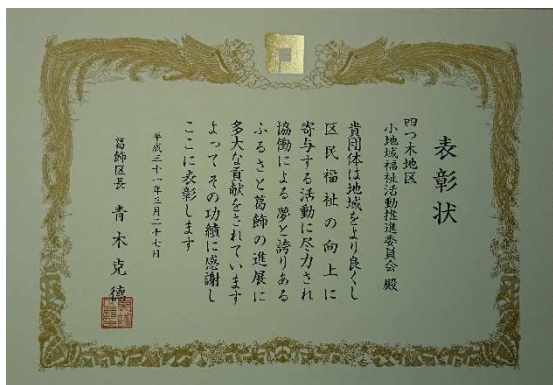 表彰状
四つ木地区
小地域福祉活動推進委員会 殿
貴団体は地域をより良くし
区民福祉の向上に
寄与する活動に尽力され
協働による夢と誇りある
ふるさと葛飾の進展に
多大な貢献をされています
よってその功績に感謝し
ここに表彰します
平成三十一年三月二十七日
葛飾区長 青木克德